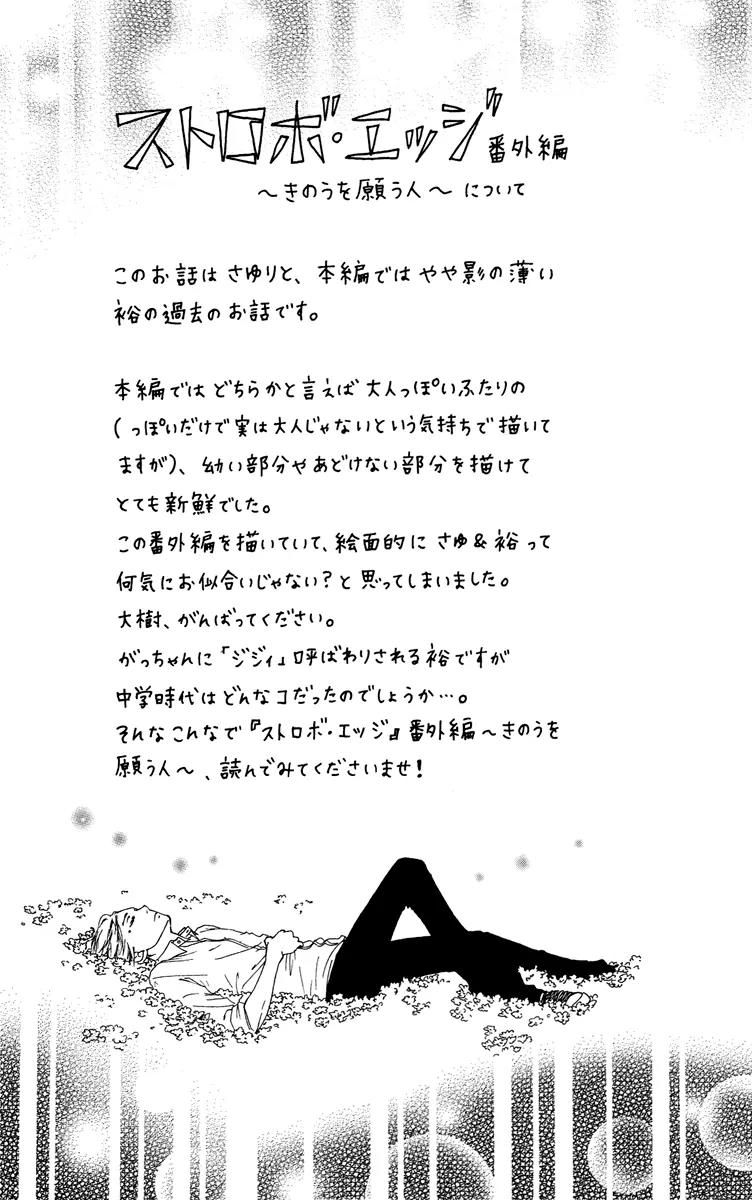 ストロボ・エッジ 番外編
〜きのうを願う人〜 について
このお話は さゆりと、本編では やや影の薄い
裕の過去の お話です。
本編では どちらかと言えば 大人っぽいふたりの
(っぽいだけで実は大人じゃないという気持ちで描いて
ますが)、幼い部分や あどけない部分を描けて
とても新鮮でした。
この番外編を描いていて、絵面的に さゆ&裕 って
何気にお似合いじゃない?と 思ってしまいました。
大樹、がんばってください。
がっちゃんに「ジジィ」呼ばわりされる裕ですが
中学時代は どんなコだったのでしょうか…。
そんな こんなで『ストロボ・エッジ』番外編〜きのうを
願う人〜、読んでみてくださいませ!